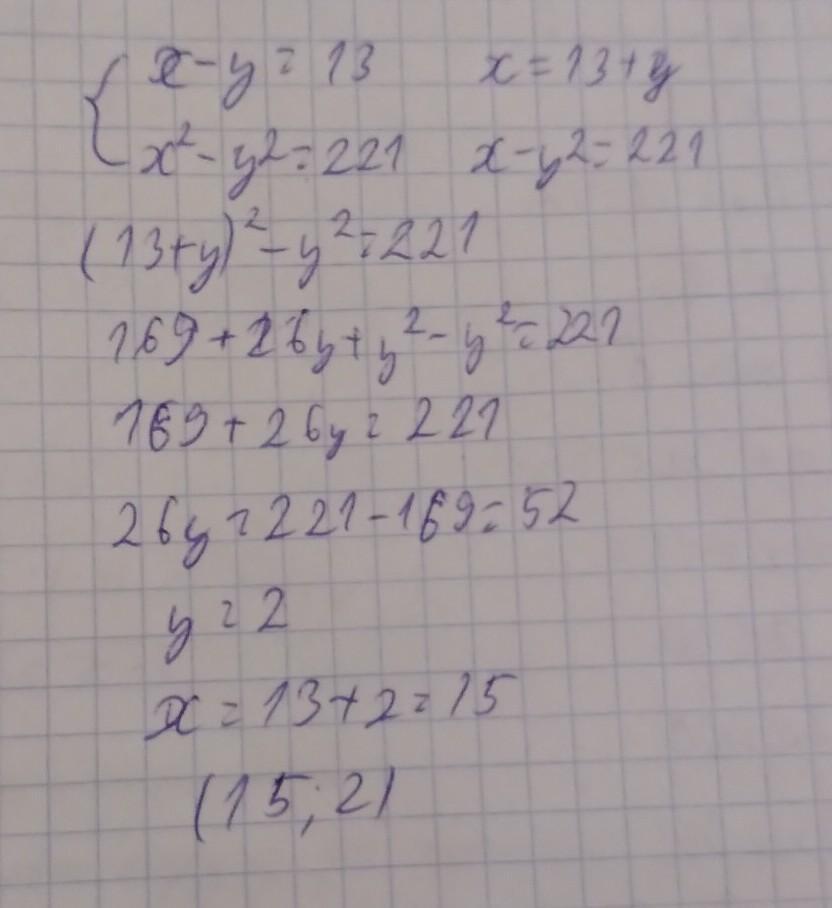 { x - y = 13 x = 13 + y
x² - y² = 221 x - y² = 221
(13+y)² - y² = 221
169 + 26y + y² - y² = 221
169 + 26y = 221
26y = 221 - 169 = 52
y = 2
x = 13 + 2 = 15
(15; 2)